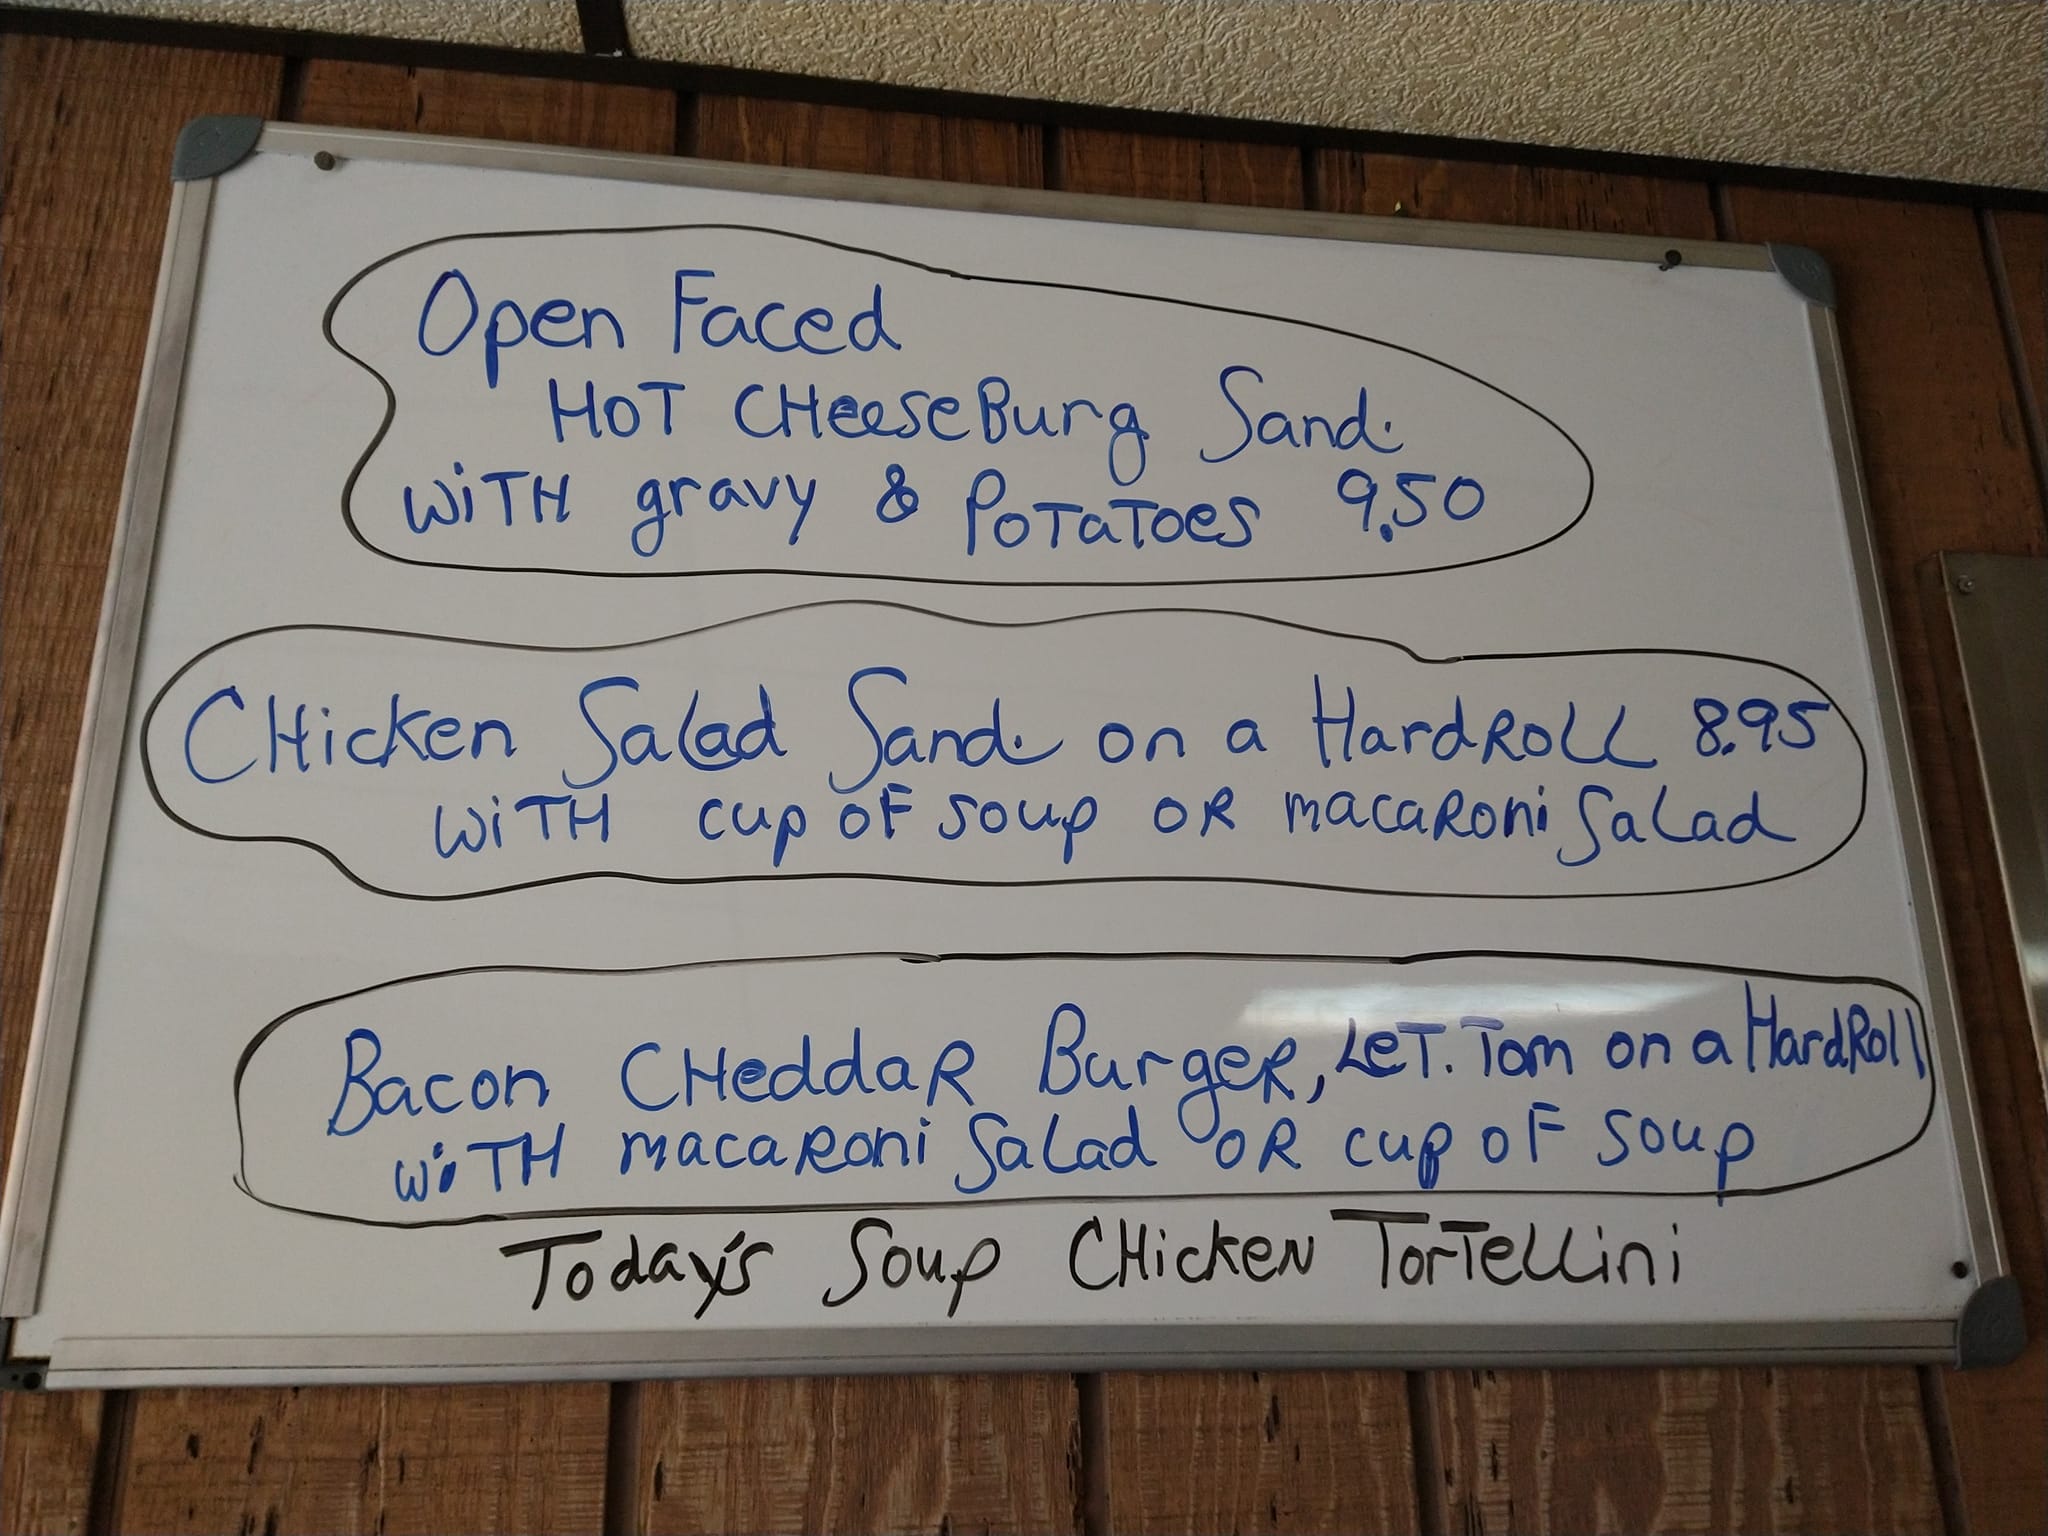 Open Faced
HOT CHeeseBurg Sand.
WiTH gravy & PoTaToes 9.50
CHicken Salad Sand. on a HardRoLL 8.95
WiTH cup OF soup OR macaRoni SaLad
Bacon CHeddaR BurgeR, LeT. Tom on a HardRoll
WiTH macaRoni SaLad OR cup OF soup
Today's Soup CHicken TorTeLLini